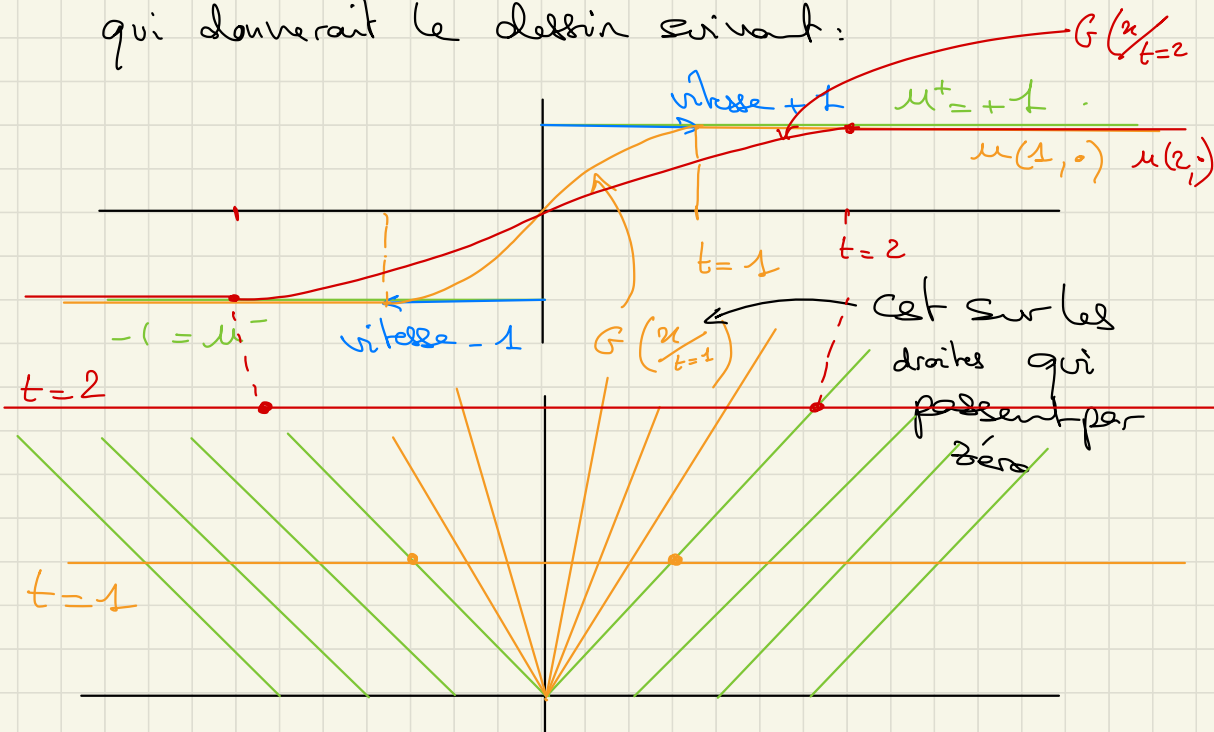 qui donnerait le dessin suivant :
G(x/t=2
vitesse +1
μ⁺ = +1
μ(1,·)
μ(2,·)
t=1
t=2
-1 = μ⁻
vitesse -1
G(x/t=1)
Cet sur les
droites qui
passent par
zéro
t=2
t=1